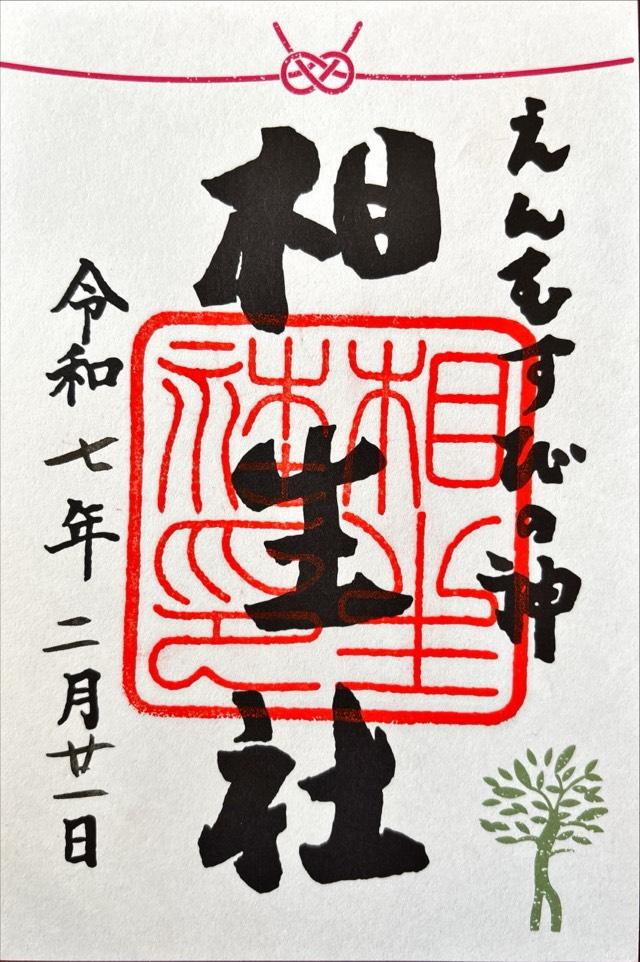 えんむすびの神
相生社
相生社印
令和七年二月廿一日